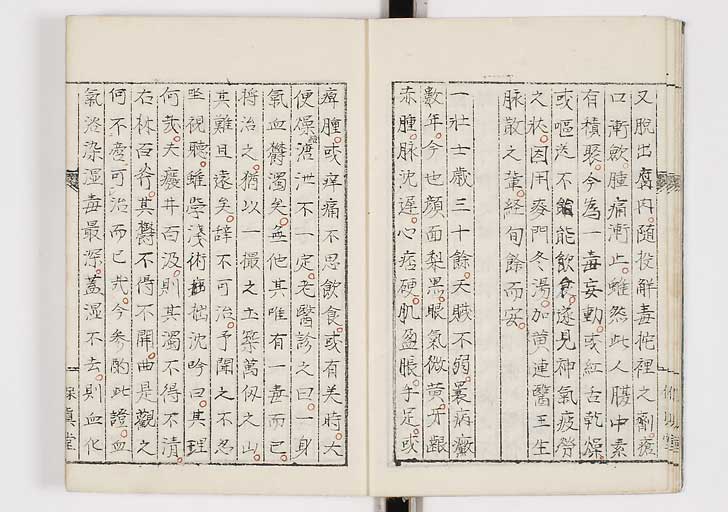 又脱出腐肉。随投解毒托裡之劑。瘡
口漸歛。腫痛漸止。雖然此人腰中素
有積聚。今為一毒妄動。或紅舌乾燥。
或嘔逆不能飲食。遂見神氣疲労
之状。因用麥門冬湯。加黄連醫王生
脉散之輩。經旬餘而安。
一壮士歳三十餘。天賦不弱。罹病瀲
數年。今也顔面梨黒。眼氣微黄。牙齦
赤腫。脉沈遲。心痞硬。肌盈脹。手足。或
痺腫。或痒痛不思飲食。或有美時。大
便燥溏泄不一定。老醫診之曰。一身
氣血欝濁矣。無他其唯有一毒而已。
将治之。猶以一撮之土築萬仭之山。
其難且遠矣。辞不可治。予聞之不忍
坐視聽。雖學淺術拙沈吟曰。其理
何哉。夫癈井百汲。則其濁不得不清。
右林百斧。其欝不得不開。曲是觀之
何不處可治而已哉。今参酌此證。血
氣沴染湿毒最深。蓋湿不去。則血化
保真堂